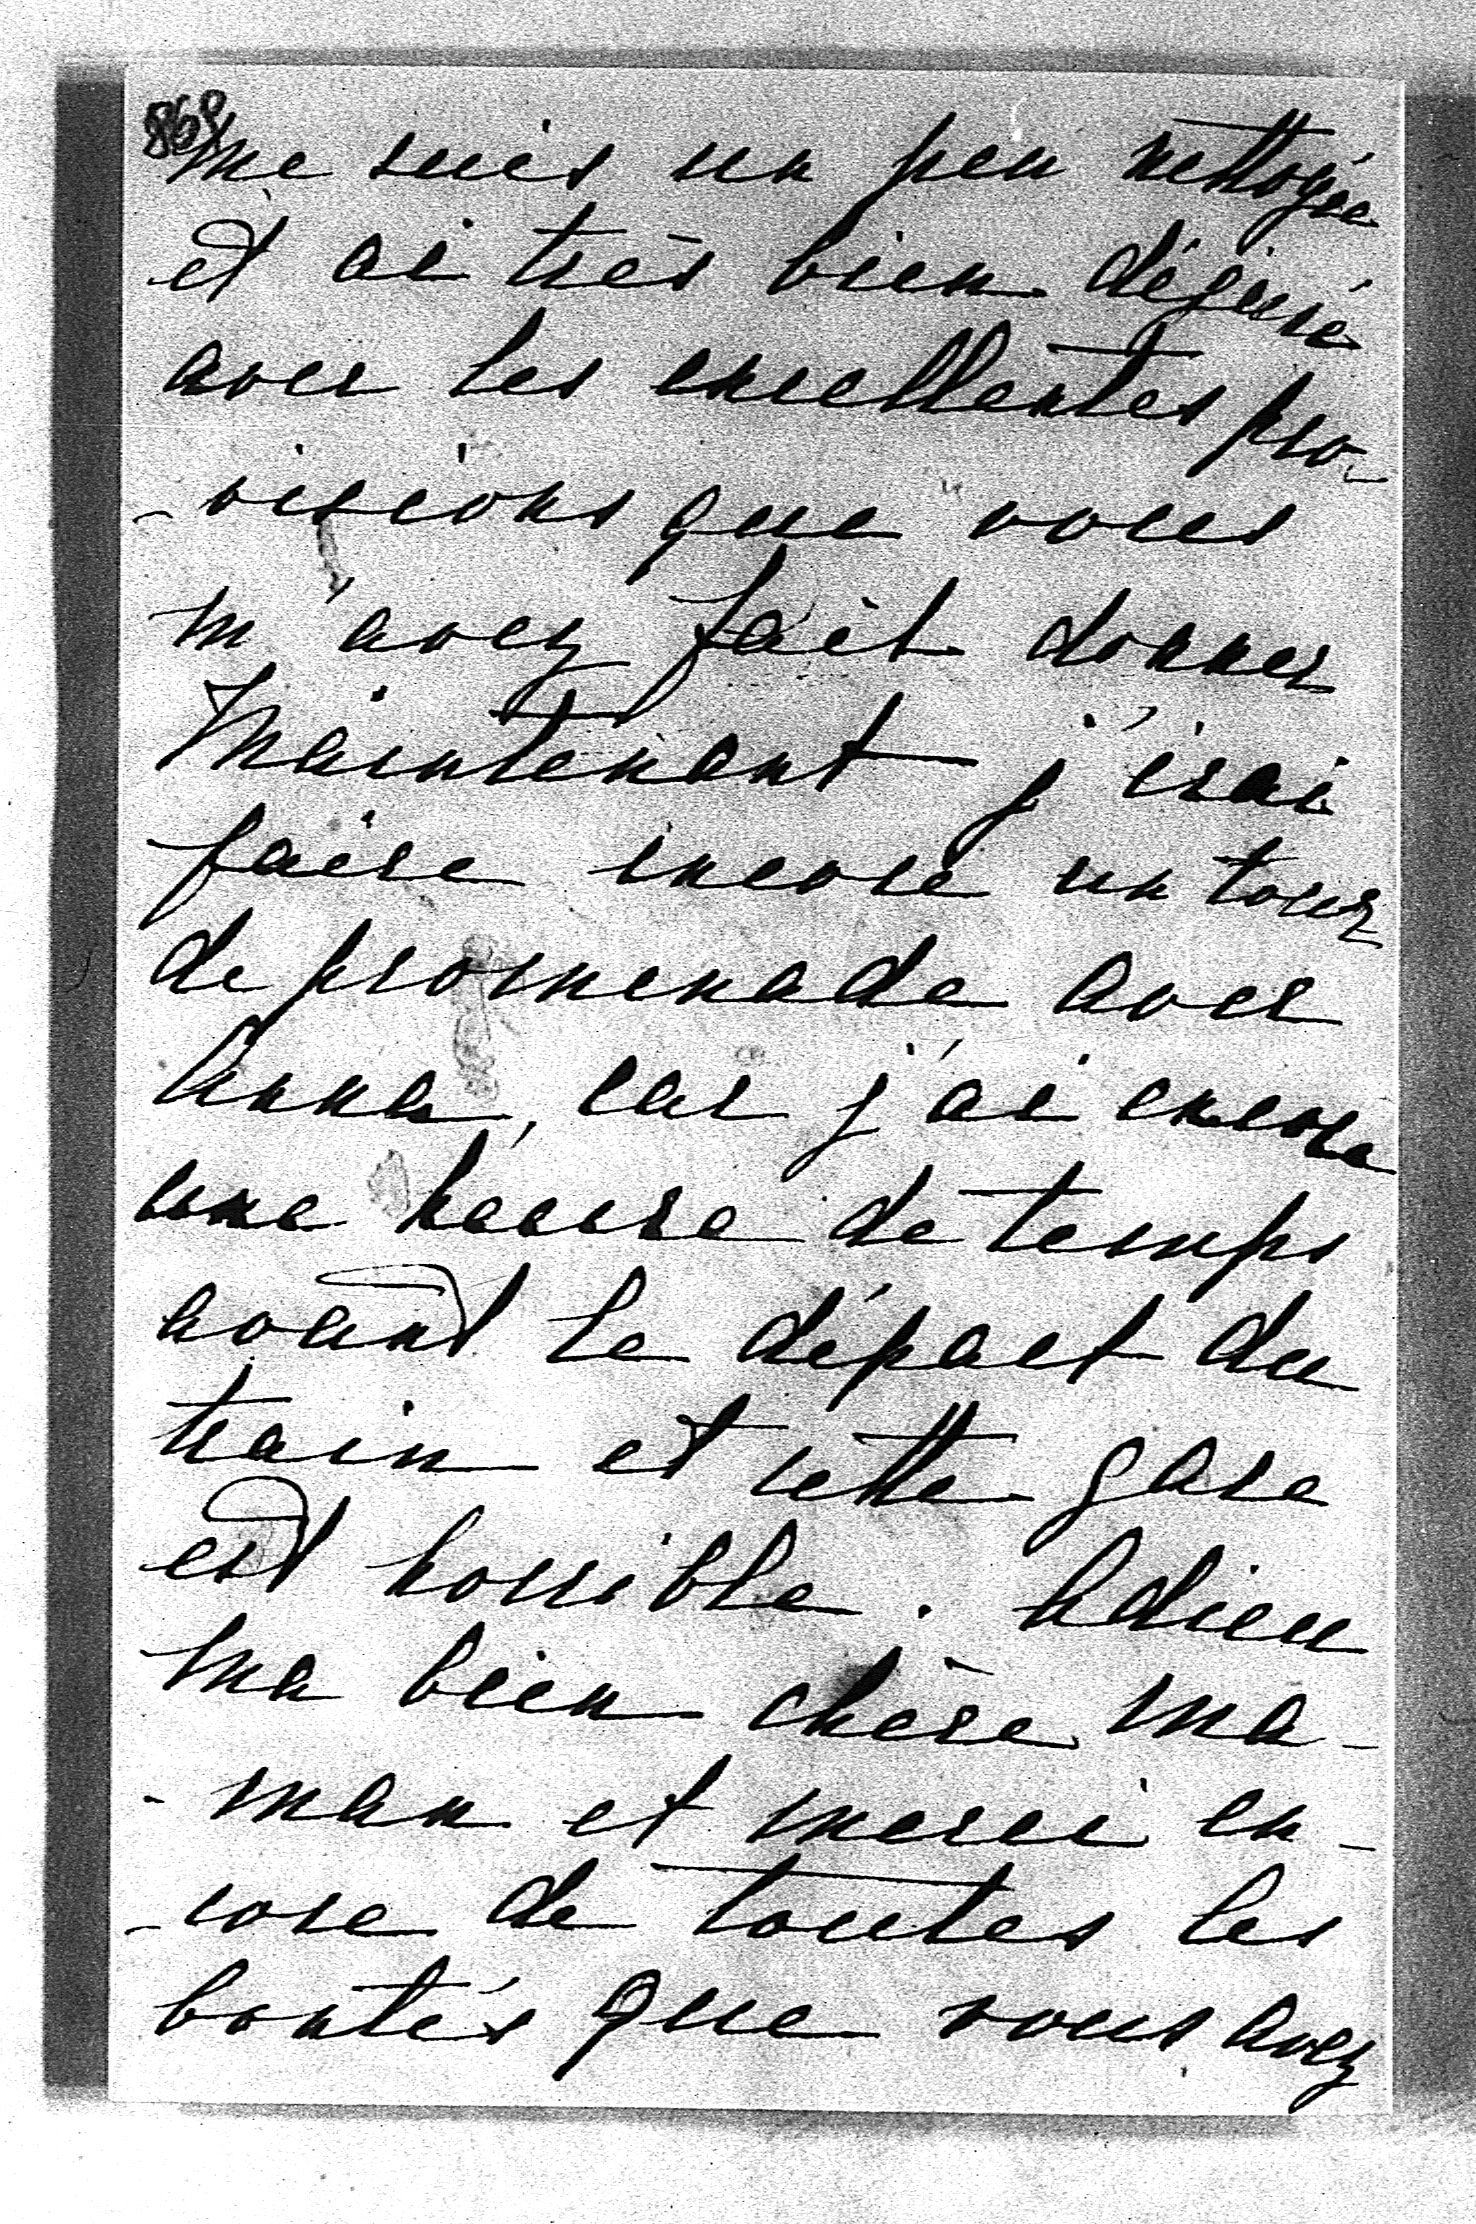 868
me suis un peu nettogée
et ai très bien déjeuné
avec les excellentes pro-
-visions que vous
m'avez fait donner
Maintenant j'irai
faire encore un tour
de promenade avec
Anna, car j'ai encore
une heure de temps
avant le départ du
train et cette gare
est horrible. Adieu
ma bien chère ma-
-man et merci en-
-core de toutes les
bontés que vous avez